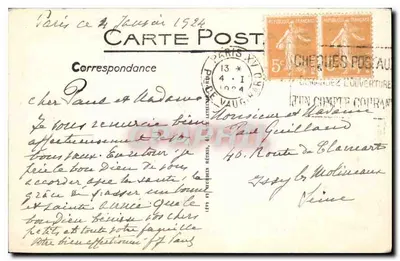 Paris ce 4 Janvier 1924
CARTE POST
Correspondance
PARIS XV
13 *
4 - I
1924
VAUG
5c
CHEQUES POSTAUX
DEMANDEZ L'OUVERTURE
D'UN COMPTE COURANT
cher Paul et Madame
Je vous remercie bien
affectueusement
vous . En retour je
prie le bon Dieu de vous
accorder que la santé la
grâce de passer un bonne
et sainte année Que le
bon Dieu bénisse vos chers
petits et toute votre famille
votre bien affectionné
Monsieur et Madame
Paul Guillard
40 Route de Clamart
Issy les Moulineaux
Seine